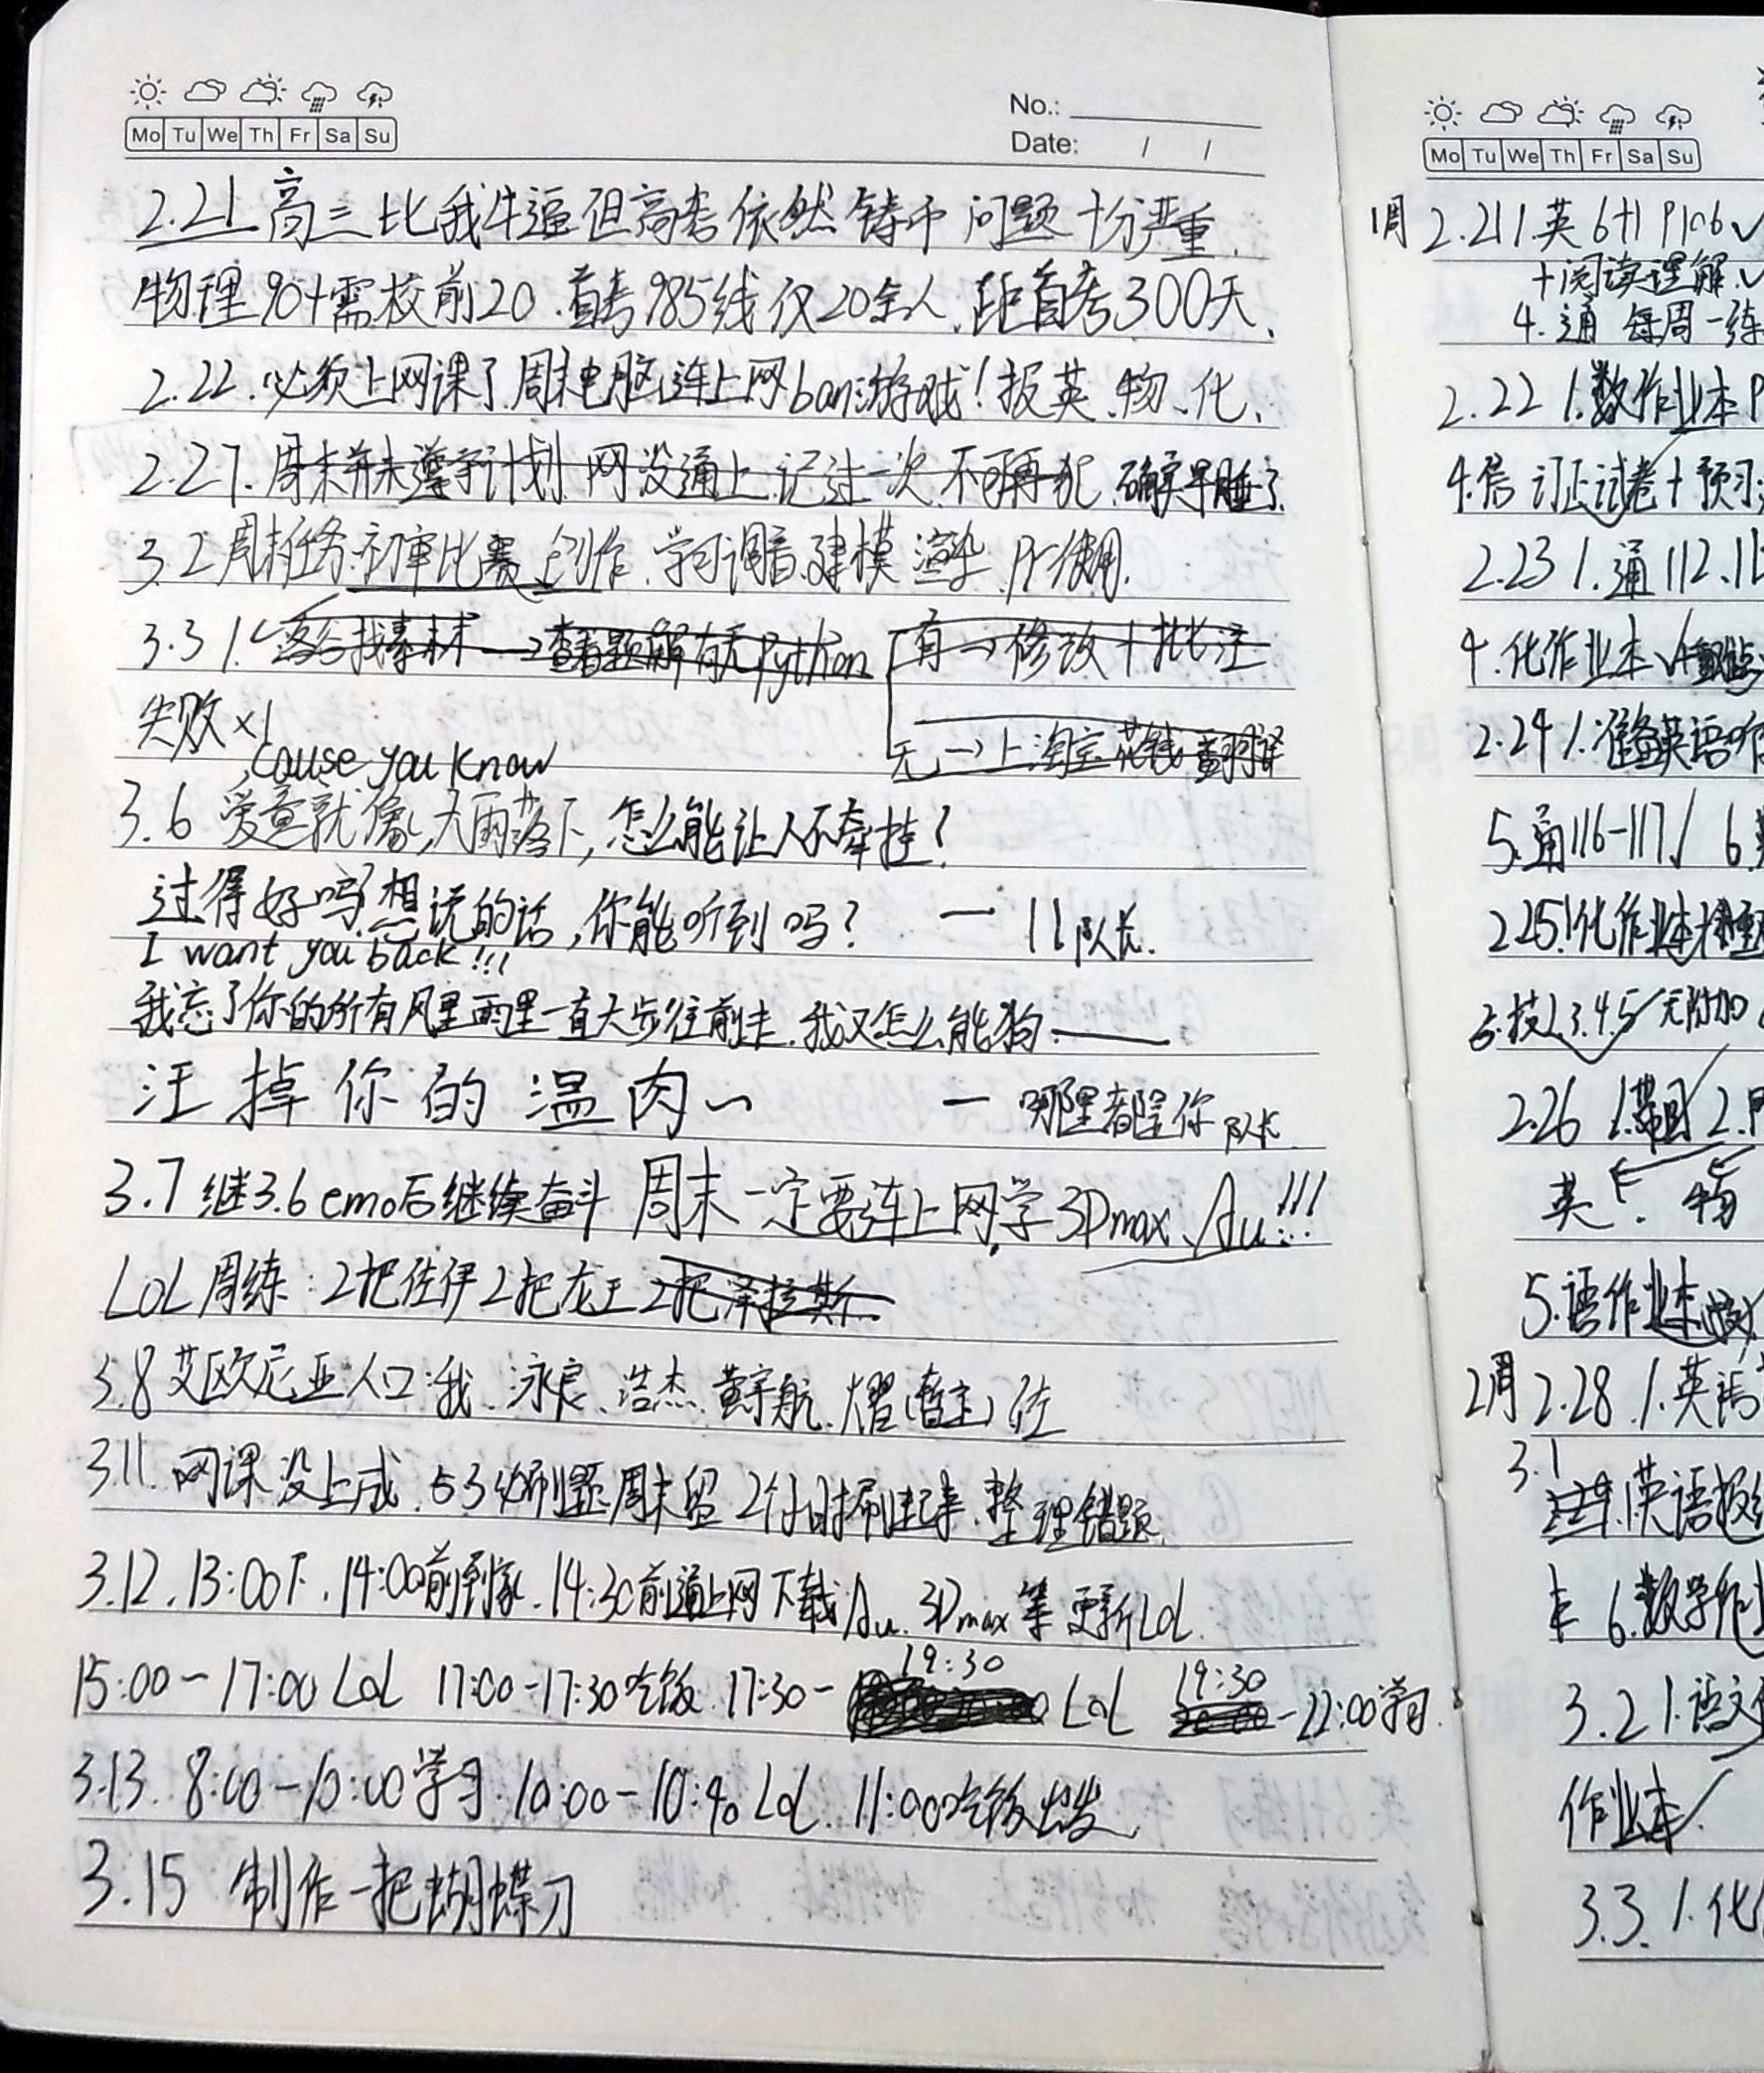 Mo Tu We Th Fr Sa Su
No.:
Date: / /
2.21 高三比我牛逼但高考依然铸币 问题十分严重.
物理90+需校前20.首考985线仅20余人.距首考300天.
2.22.必须上网课了周末电脑连上网ban游戏!报英、物、化、
2.27.周末并未遵守计划 网没通上.记过一次.不可再犯.确实早睡了.
3.2周末任务:初审比赛创作.学习调音.建模 渲染.Pr使用.
3.3 1.洛谷找素材→查看题解有无python 有→修改+批注
失败×1
无→上淘宝花钱翻译
cause you know
3.6 爱意就像,大雨落下,怎么能让人不牵挂?
过得好吗?想说的话,你能听到吗? — 11队长.
I want you back!!!
我忘了你的所有风里雨里一直大步往前走.我又怎么能狗——
汪掉你的温肉~ — 哪里都是你 队长.
3.7 继3.6emo后继续奋斗 周末一定要连上网,学3Dmax、Au!!!
LoL周练:2把佐伊2把龙王2把泽拉斯
3.8艾欧尼亚人口:我、泳良、浩杰、黄宇航、熠(暂定)位
3.11.网课没上成.53必刷题周末留2个小时刷起来.整理错题.
3.12.13:00下.14:00前到家.14:30前通上网下载Au.3Dmax等 更新LoL.
15:00-17:00 LoL 17:00-17:30吃饭.17:30-19:30 LoL 19:30-22:00学习.
3.13.8:00-10:00学习.10:00-10:40 LoL.11:00吃饭出发
3.15 制作一把蝴蝶刀
Mo Tu We Th Fr Sa Su
1周 2.21 1.英6+1 P106✓
+阅读理解✓
4.通 每周一练
2.22 1.数作业本P
4.信 订正试卷+预习
2.23 1.通112.11
4.化作业本✓
2.24 1.准备英语听
5.通116-117/ 6.
2.25 1.化作业本
3.技1.3.4.5/无附加
2.26 1.
英. 物
5.语作业本
2周 2.28.1.英语
3.1
1.英语报
本 6.数学作业
3.2 1.语文
作业本✓
3.3 1.化